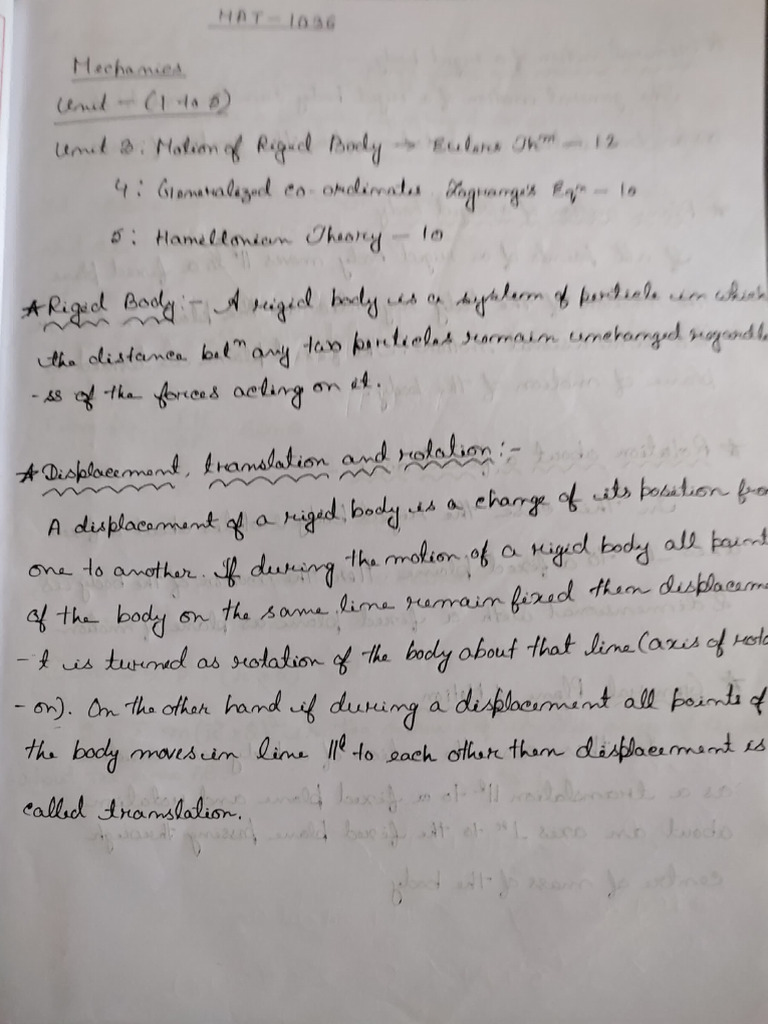 MAT-1036
Mechanics
Unit - (1 to 5)
Unit 3: Motion of Rigid Body → Eulers Thᵐ - 12
4: Generalized co-ordinates Lagrange's Eqⁿ - 10
5: Hamiltonian Theory - 10
* Rigid Body:- A rigid body is a system of particle in which
the distance betⁿ any two particles remain unchanged regardle
-ss of the forces acting on it.
* Displacement, translation and rotation:-
A displacement of a riged body is a change of its position fro
one to another. If during the motion of a rigid body all point
of the body on the same line remain fixed then displacem
-t is turned as rotation of the body about that line (axis of rota
-on). On the other hand if during a displacement all points of
the body moves in line ||ˡ to each other then displacement is
called translation.